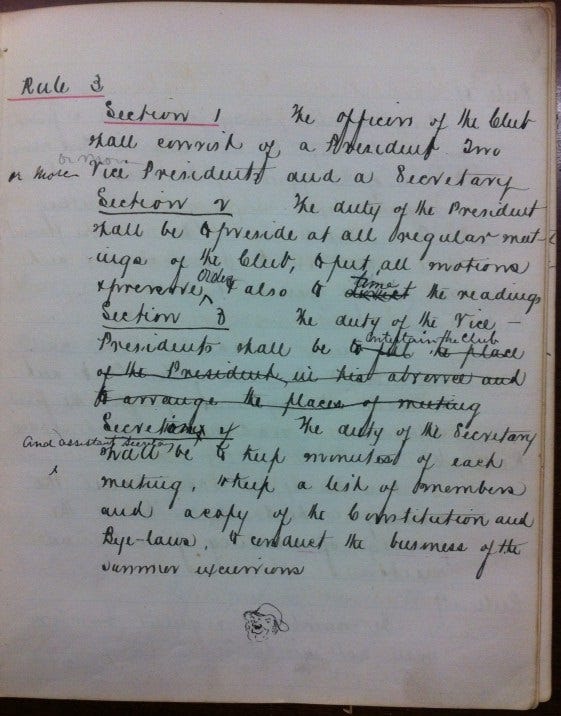 Rule 3
Section 1 The officers of the Club
shall consist of a President Two
or more
or more Vice Presidents and a Secretary
Section 2 The duty of the President
shall be to preside at all regular meet-
ings of the Club, to put all motions
order
preserve, & also to direct time the readings
Section 3 The duty of the Vice-
Presidents shall be to fill the place
entertain the Club
of the President, in his absence and
to arrange the places of meeting
Section 4 The duty of the Secretary
And assistant Secretary
shall be to keep minutes of each
meeting, to keep a list of members
and a copy of the Constitution and
Bye-laws, to conduct the business of the
summer excursions